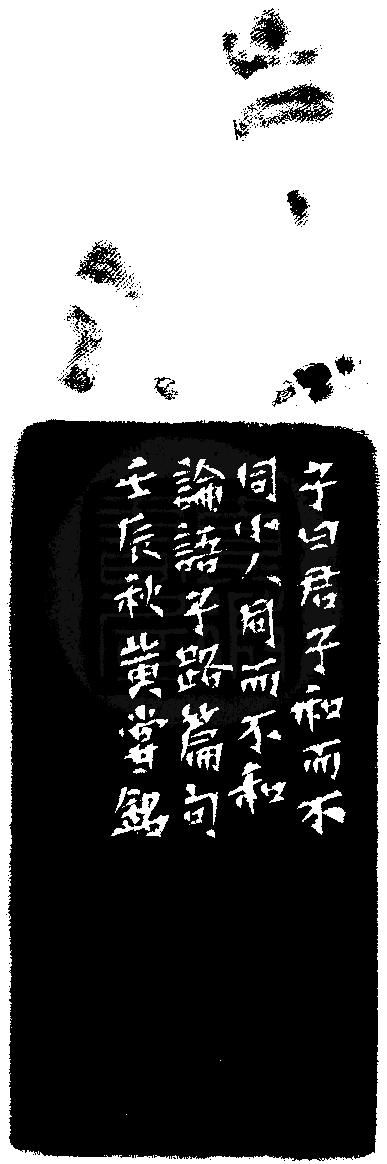 子曰君子和而不
同小人同而不和
論語子路篇句
壬辰秋黄堂銘